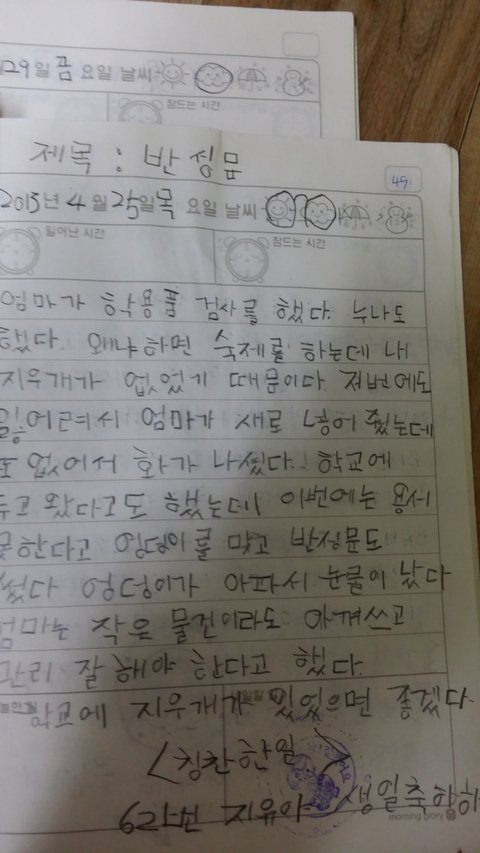 29일 금 요일 날씨
잠드는 시간
제목 : 반성문
45
2013년 4월 25일 목 요일 날씨
일어난 시간
잠드는 시간
엄마가 학용품 검사를 했다. 누나도
했다. 왜냐하면 숙제를 하는데 내
지우개가 없었기 때문이다. 저번에도
잃어려서 엄마가 새로 넣어 줬는데
또 없어서 화가 나셨다. 학교에
두고 왔다고도 했는데 이번에는 용서
못한다고 엉덩이를 맞고 반성문도
썼다 엉덩이가 아파서 눈물이 났다
엄마는 작은 물건이라도 아껴쓰고
관리 잘 해야 한다고 했다.
학교에 지우개가 있었으면 좋겠다.
<칭찬한일>
62라번 지유아 생일축하하
morning glory